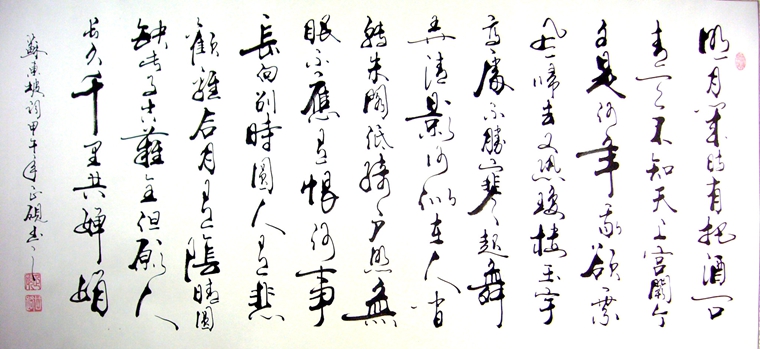 明月幾時有把酒問
青天不知天上宮闕今
夕是何年我欲乘
風歸去又恐瓊樓玉宇
高處不勝寒起舞
弄清影何似在人間
轉朱閣低綺戶照無
眠不應有恨何事
長向別時圓人有悲
歡離合月有陰晴圓
缺此事古難全但願人
長久千里共嬋娟
蘇東坡詞甲午年正硯書